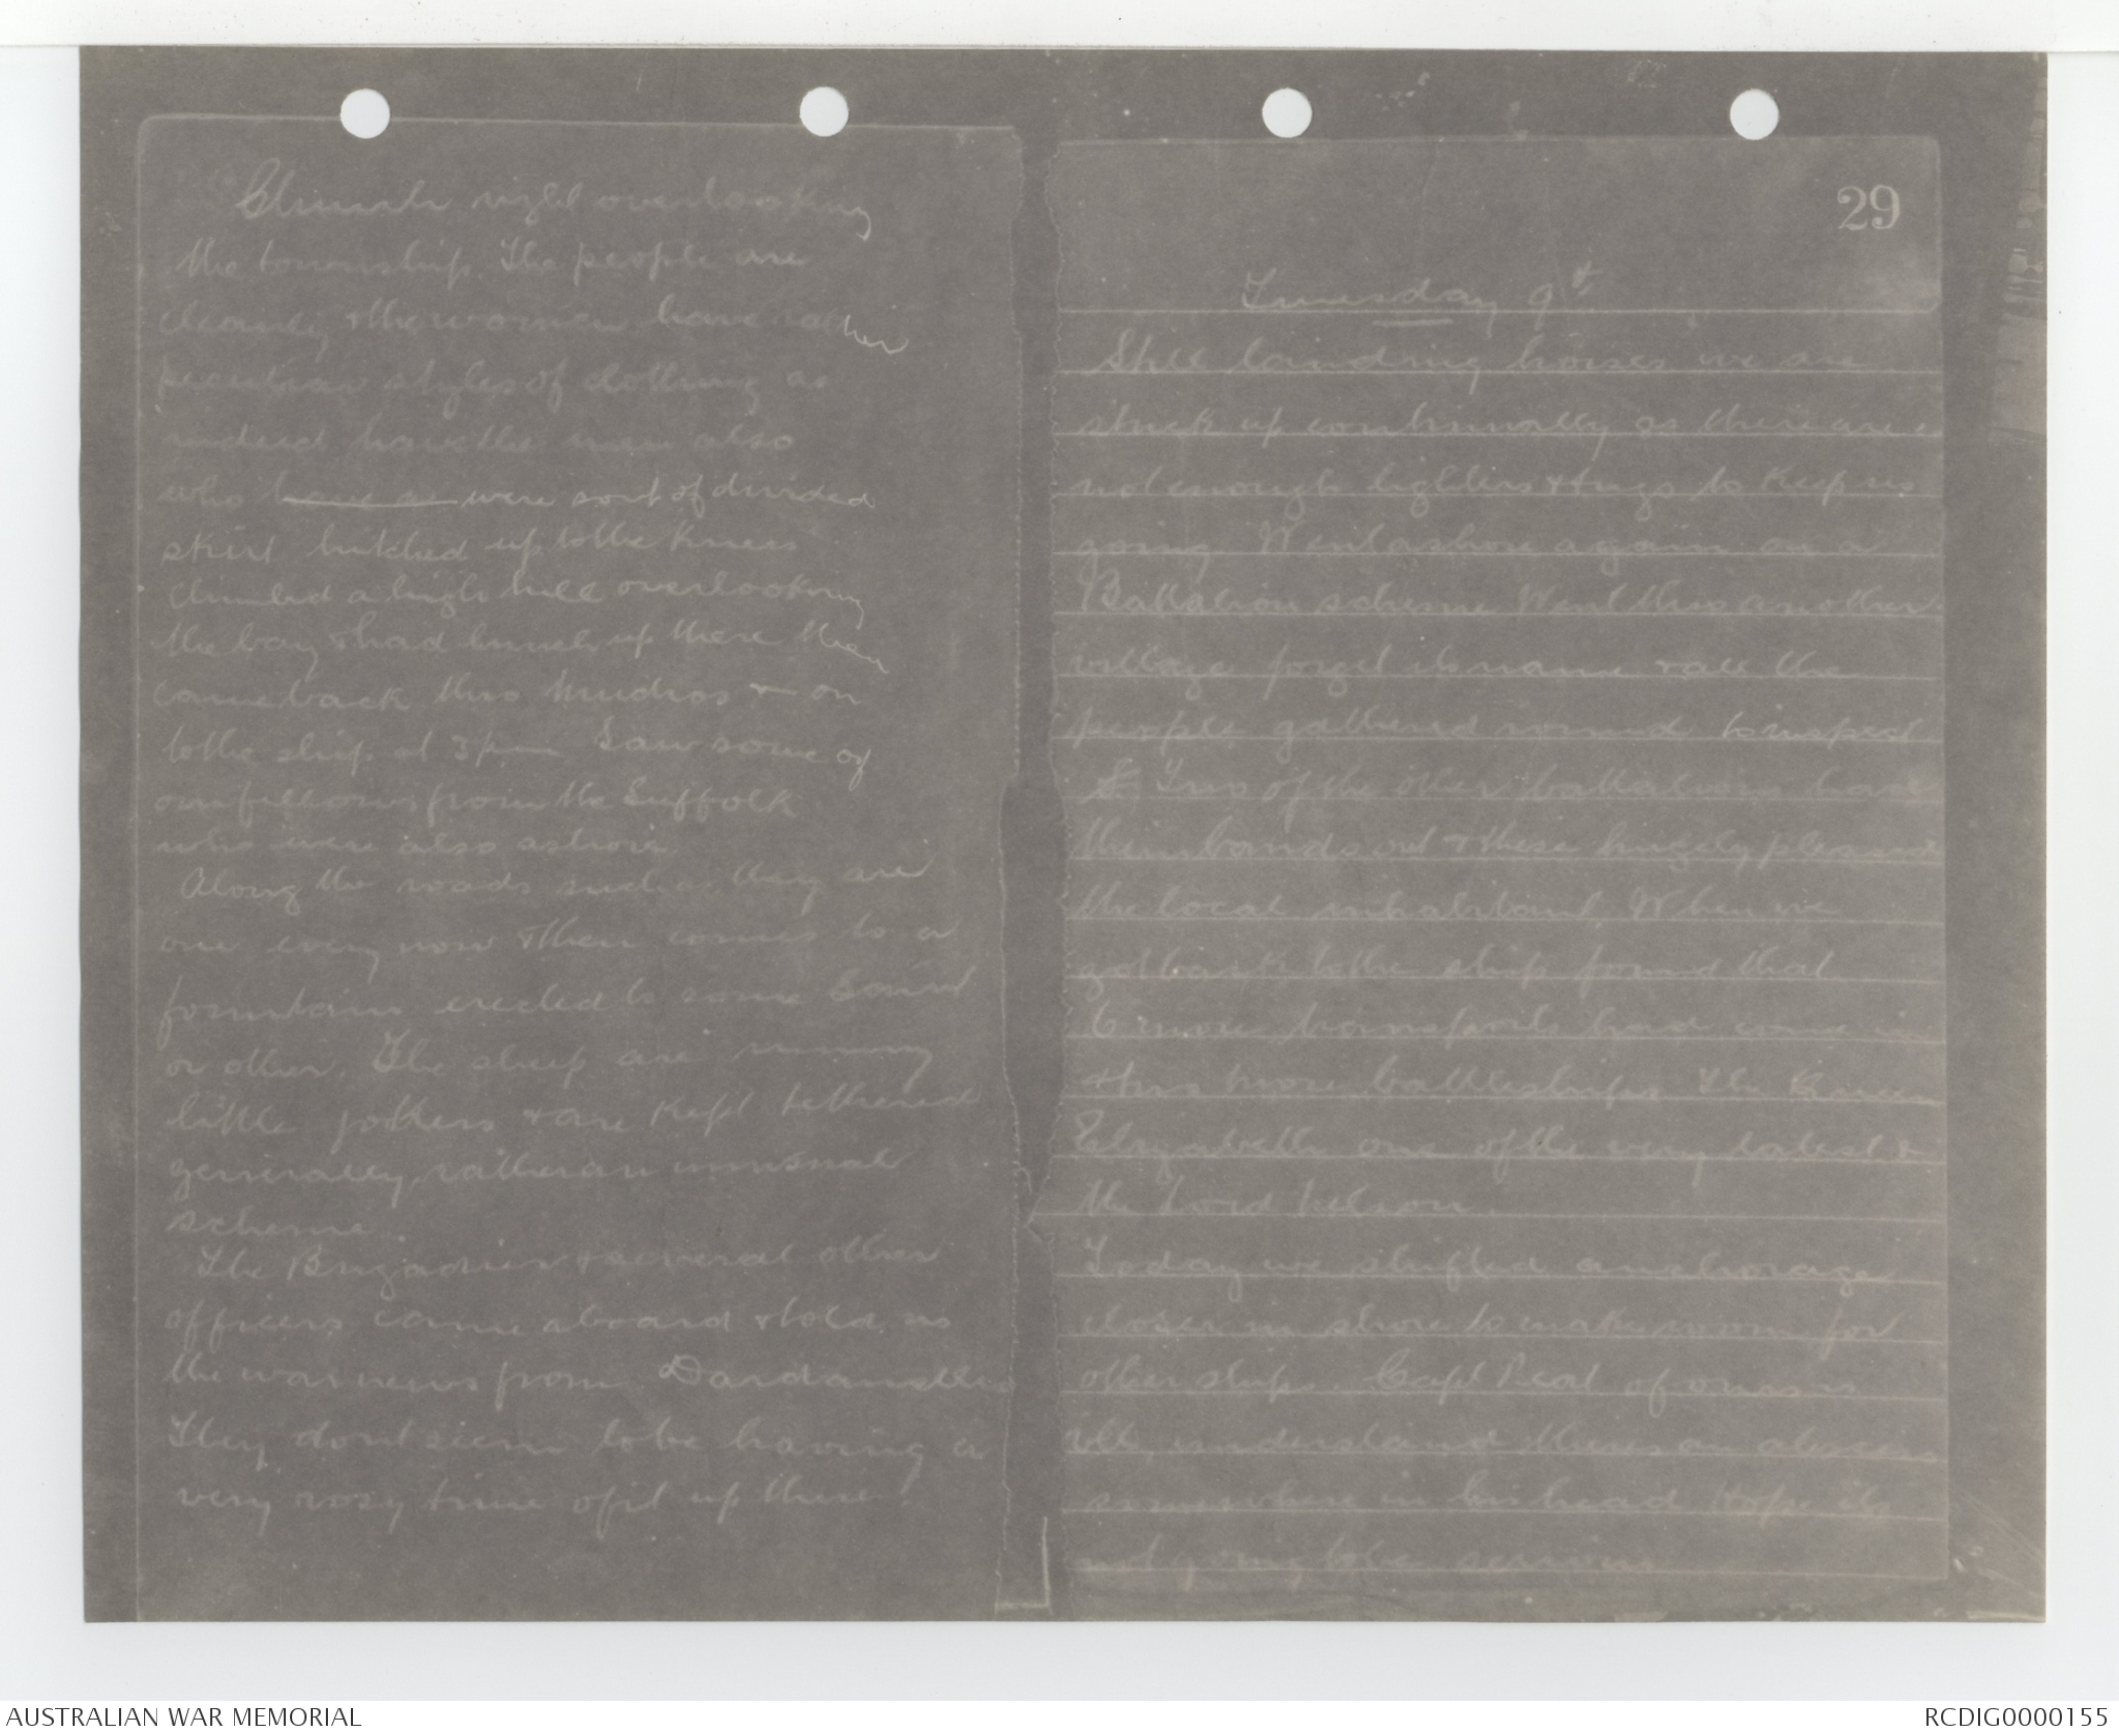 Church right overlooking
the township. The people are
cleanly & the women have rather
peculiar styles of clothing as
indeed have the men also
who have a were sort of divided
skirt hitched up to the knees
climbed a high hill overlooking
the bay & had lunch up there then
came back thro Mudros & on
to the ship at 3 pm Saw some of
our fellows from the Suffolk
who were also ashore.
Along the roads such as they are
one every now & then comes to a
fountain erected to some Saint
or other. The sheep are
little jokers & are kept tethered
generally, rather an unusual
scheme.
The Brigadier & several other
officers came aboard & told us
the war news from Dardanelles
They dont seem to be having a
very rosy time of it up there!
29
Tuesday 9th
Still landing horses we are
stuck up continually as there are
not enough lighters & tugs to keep us
going Went ashore again on a
Battalion scheme Went thro another
village forget its name & all the
people gathered round to inspect
Two of the other battalions have
their bands out & these hugely please
the local inhabitant. When we
got back to the ship found that
6 more transports had come in
& two more battleships The Queen
Elizabeth one of the very latest &
the Lord Nelson.
Today we shifted anchorage
closer in shore to make room for
other ships. Capt of ours is
ill, understand theres an abscess
somewhere in his head hope its
not going to be serious
AUSTRALIAN WAR MEMORIAL
RCDIG0000155